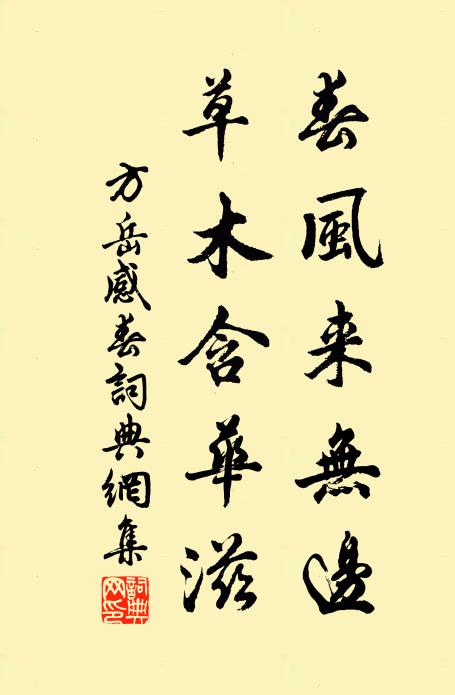 春風来無邊
草木含華滋
方岳感春詞典網集
詞典網印